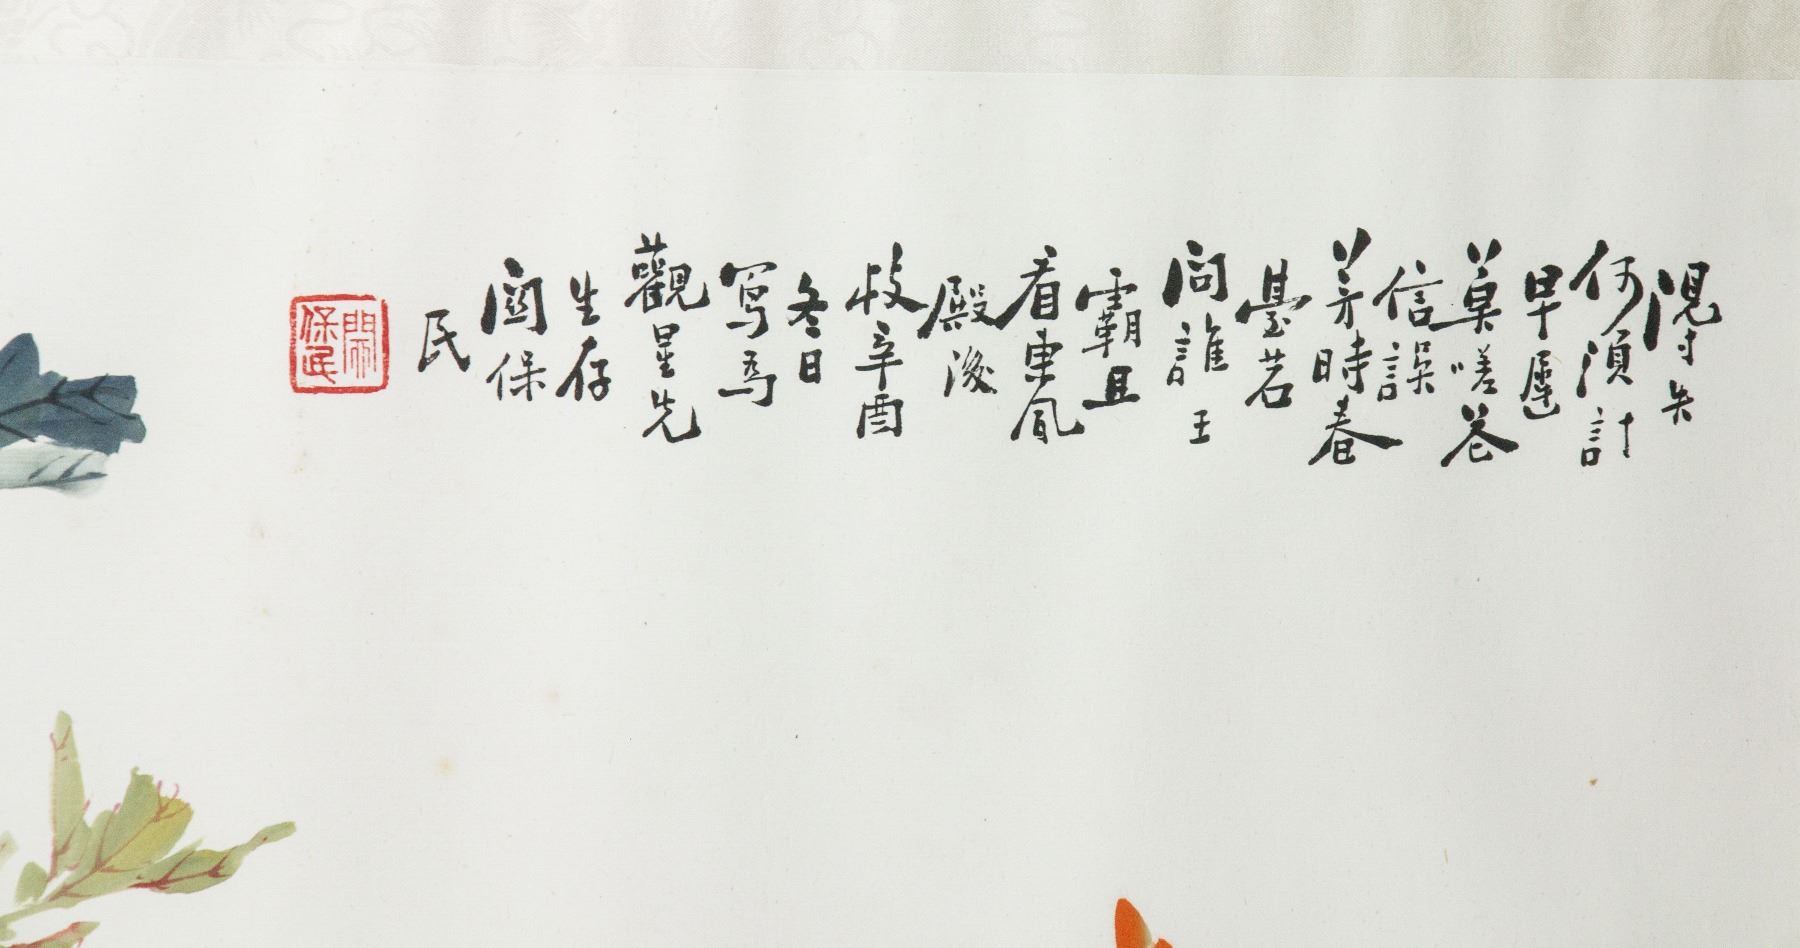 得失
何須計
早遲
莫嗟花
信誤
芳時春
臺若
問誰王
霸且
看東風
殿後
枝辛酉
冬日
寫為
觀星先
生存
關保
民
關保民